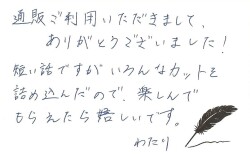 通販ご利用いただきまして、
ありがとうございました!
短い話ですがいろんなカットを
詰め込んだので、楽しんで
もらえたら嬉しいです。
わたり